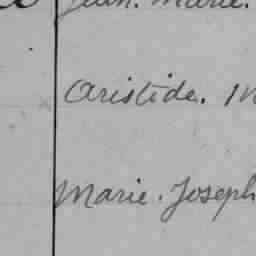 Jean. Marie.
Aristide.
Marie. Joseph